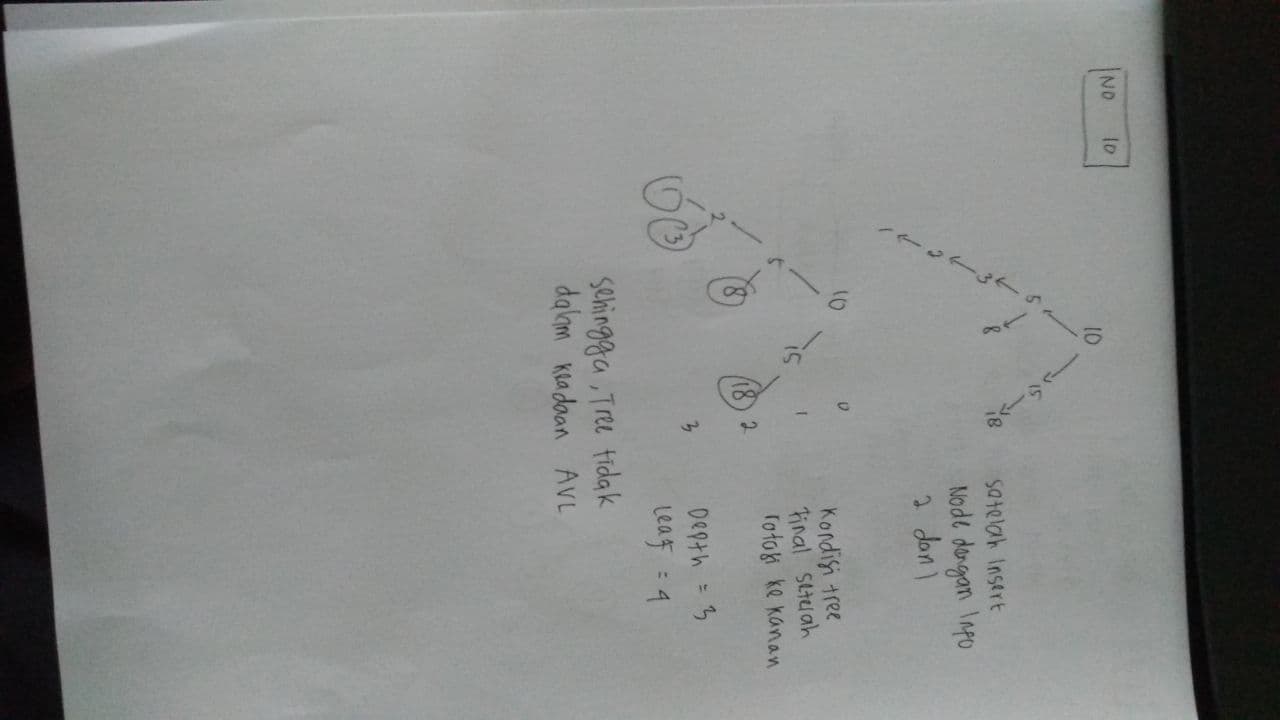 NO 10
10
5 15
3 8 18
2
1
Setelah Insert
Node dengan Info
2 dan 1
10 0
15 1
5
8 18 2
2
1 3 3
Kondisi tree
Final setelah
rotasi ke kanan
Depth = 3
Leaf = 4
Sehingga, Tree tidak
dalam keadaan AVL